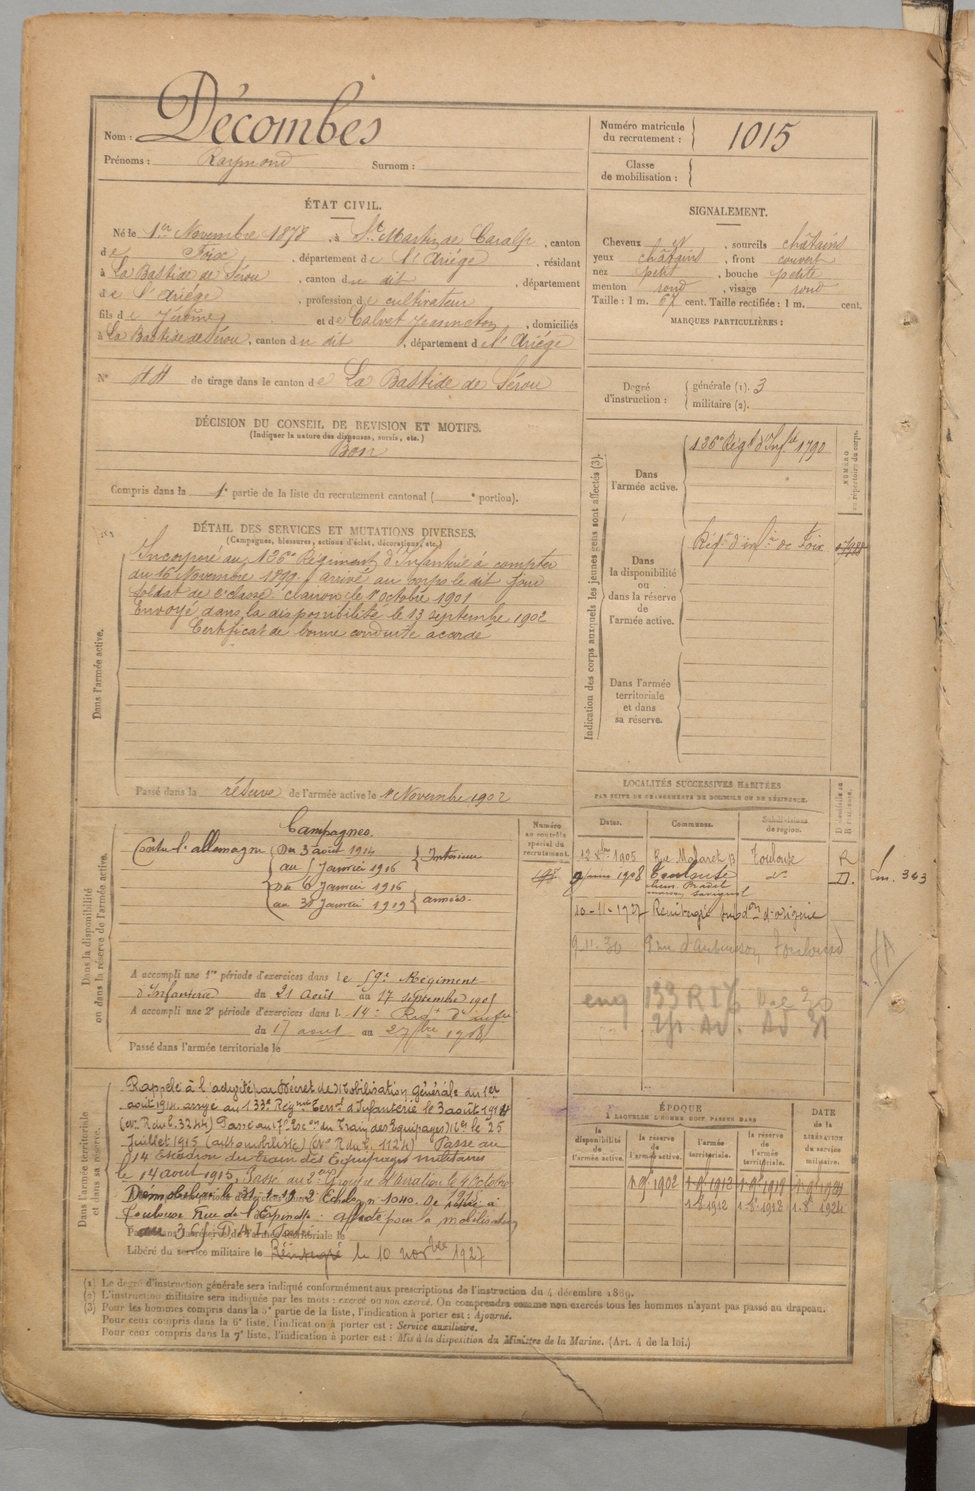 Nom : Décombes
Prénoms : Raymond Surnom :
Numéro matricule du recrutement : 1015
Classe de mobilisation :
ÉTAT CIVIL.
Né le 1er Novembre 1878, à St Martin de Caralp, canton
de Foix, département de l'Ariège, résidant
à La Bastide de Sérou, canton du dit, département
de l'Ariège, profession de cultivateur
fils de Jérôme et de Calvet Jeanneton, domiciliés
à La Bastide de Sérou, canton du dit, département de l'Ariège
N° 44 de tirage dans le canton de La Bastide de Sérou
SIGNALEMENT.
Cheveux et, sourcils châtains
yeux châtains, front couvert
nez petit, bouche petite
menton rond, visage rond
Taille : 1 m. 67 cent. Taille rectifiée : 1 m. cent.
MARQUES PARTICULIÈRES :
Degré d'instruction : générale (1). 3
militaire (2).
DÉCISION DU CONSEIL DE REVISION ET MOTIFS.
(Indiquer la nature des dispenses, sursis, etc.)
Bon
Compris dans la 1e partie de la liste du recrutement cantonal ( e portion).
DÉTAIL DES SERVICES ET MUTATIONS DIVERSES.
(Campagnes, blessures, actions d'éclat, décorations, etc.)
Dans l'armée active.
Incorporé au 126e Régiment d'Infanterie à compter
du 16 Novembre 1899, arrivé au corps le dit jour
soldat de 2e classe clairon le 1er octobre 1901
Envoyé dans la disponibilité le 13 septembre 1902
Certificat de bonne conduite accordé
Passé dans la réserve de l'armée active le 1er Novembre 1902
Indication des corps auxquels les jeunes gens sont affectés (3).
NUMÉRO au répertoire du corps.
Dans l'armée active.
126e Régt d'Infie 1790
Dans la disponibilité ou dans la réserve de l'armée active.
Régt d'inf.ie de Foix
Dans l'armée territoriale et dans sa réserve.
LOCALITÉS SUCCESSIVES HABITÉES
PAR SUITE DE CHANGEMENTS DE DOMICILE OU DE RÉSIDENCE.
Dates. Communes. Subdivisions de région. D domicile ou R résidence.
1905 Rue Matarel Toulouse R
1908 Toulouse do D. Em. 343
10-11-1927 d'origine
9.11.30
133 RI
Dans la disponibilité ou dans la réserve de l'armée active.
Numéro au contrôle spécial du recrutement.
Campagnes.
Contre l'allemagne Du 3 août 1914
au 5 Janvier 1916 Intérieur
Du 6 Janvier 1916
au 30 Janvier 1919 armées.
A accompli une 1re période d'exercices dans le 59e Régiment
d'Infanterie du 21 Août au 17 septembre 1905
A accompli une 2e période d'exercices dans l 14e Régt d'infie
du 17 août au 2 7bre 1908
Passé dans l'armée territoriale le
Dans l'armée territoriale et dans sa réserve.
Rappelé à l'activité par Décret de Mobilisation Générale du 1er
août 1914. arrivé au 133e Régiment Terral d'Infanterie le 3 août 1914
(No R du C. 3244) Passé au 17e Esc.on du Train des Equipages 16e le 25
Juillet 1915 (automobiliste) (No R du C. 1124) Passé au
14 Escadron du Train des Equipages militaires
le 14 août 1915. Passé au 2e Groupe d'aviation le
Démobilisé le 31-1-19 2e Echelon no 1040. Se retire à
Toulouse Rue de l'Espinette. Affecté pour la mobilisation
Libéré du service militaire le le 10 novbre 1927
ÉPOQUE
À LAQUELLE L'HOMME DOIT PASSER DANS
la disponibilité de l'armée active. la réserve de l'armée active. l'armée territoriale. la réserve de l'armée territoriale.
DATE de la LIBÉRATION du service militaire.
1.9.1902
1.8.1912 1.8.1918 1.8.1924
(1) Le degré d'instruction générale sera indiqué conformément aux prescriptions de l'instruction du 4 décembre 1889.
(2) L'instruction militaire sera indiquée par les mots : exercé ou non exercé. On comprendra comme non exercés tous les hommes n'ayant pas passé au drapeau.
(3) Pour les hommes compris dans la 5e partie de la liste, l'indication à porter est : Ajourné.
Pour ceux compris dans la 6e liste, l'indication à porter est : Service auxiliaire.
Pour ceux compris dans la 7e liste, l'indication à porter est : Mis à la disposition du Ministre de la Marine. (Art. 4 de la loi.)